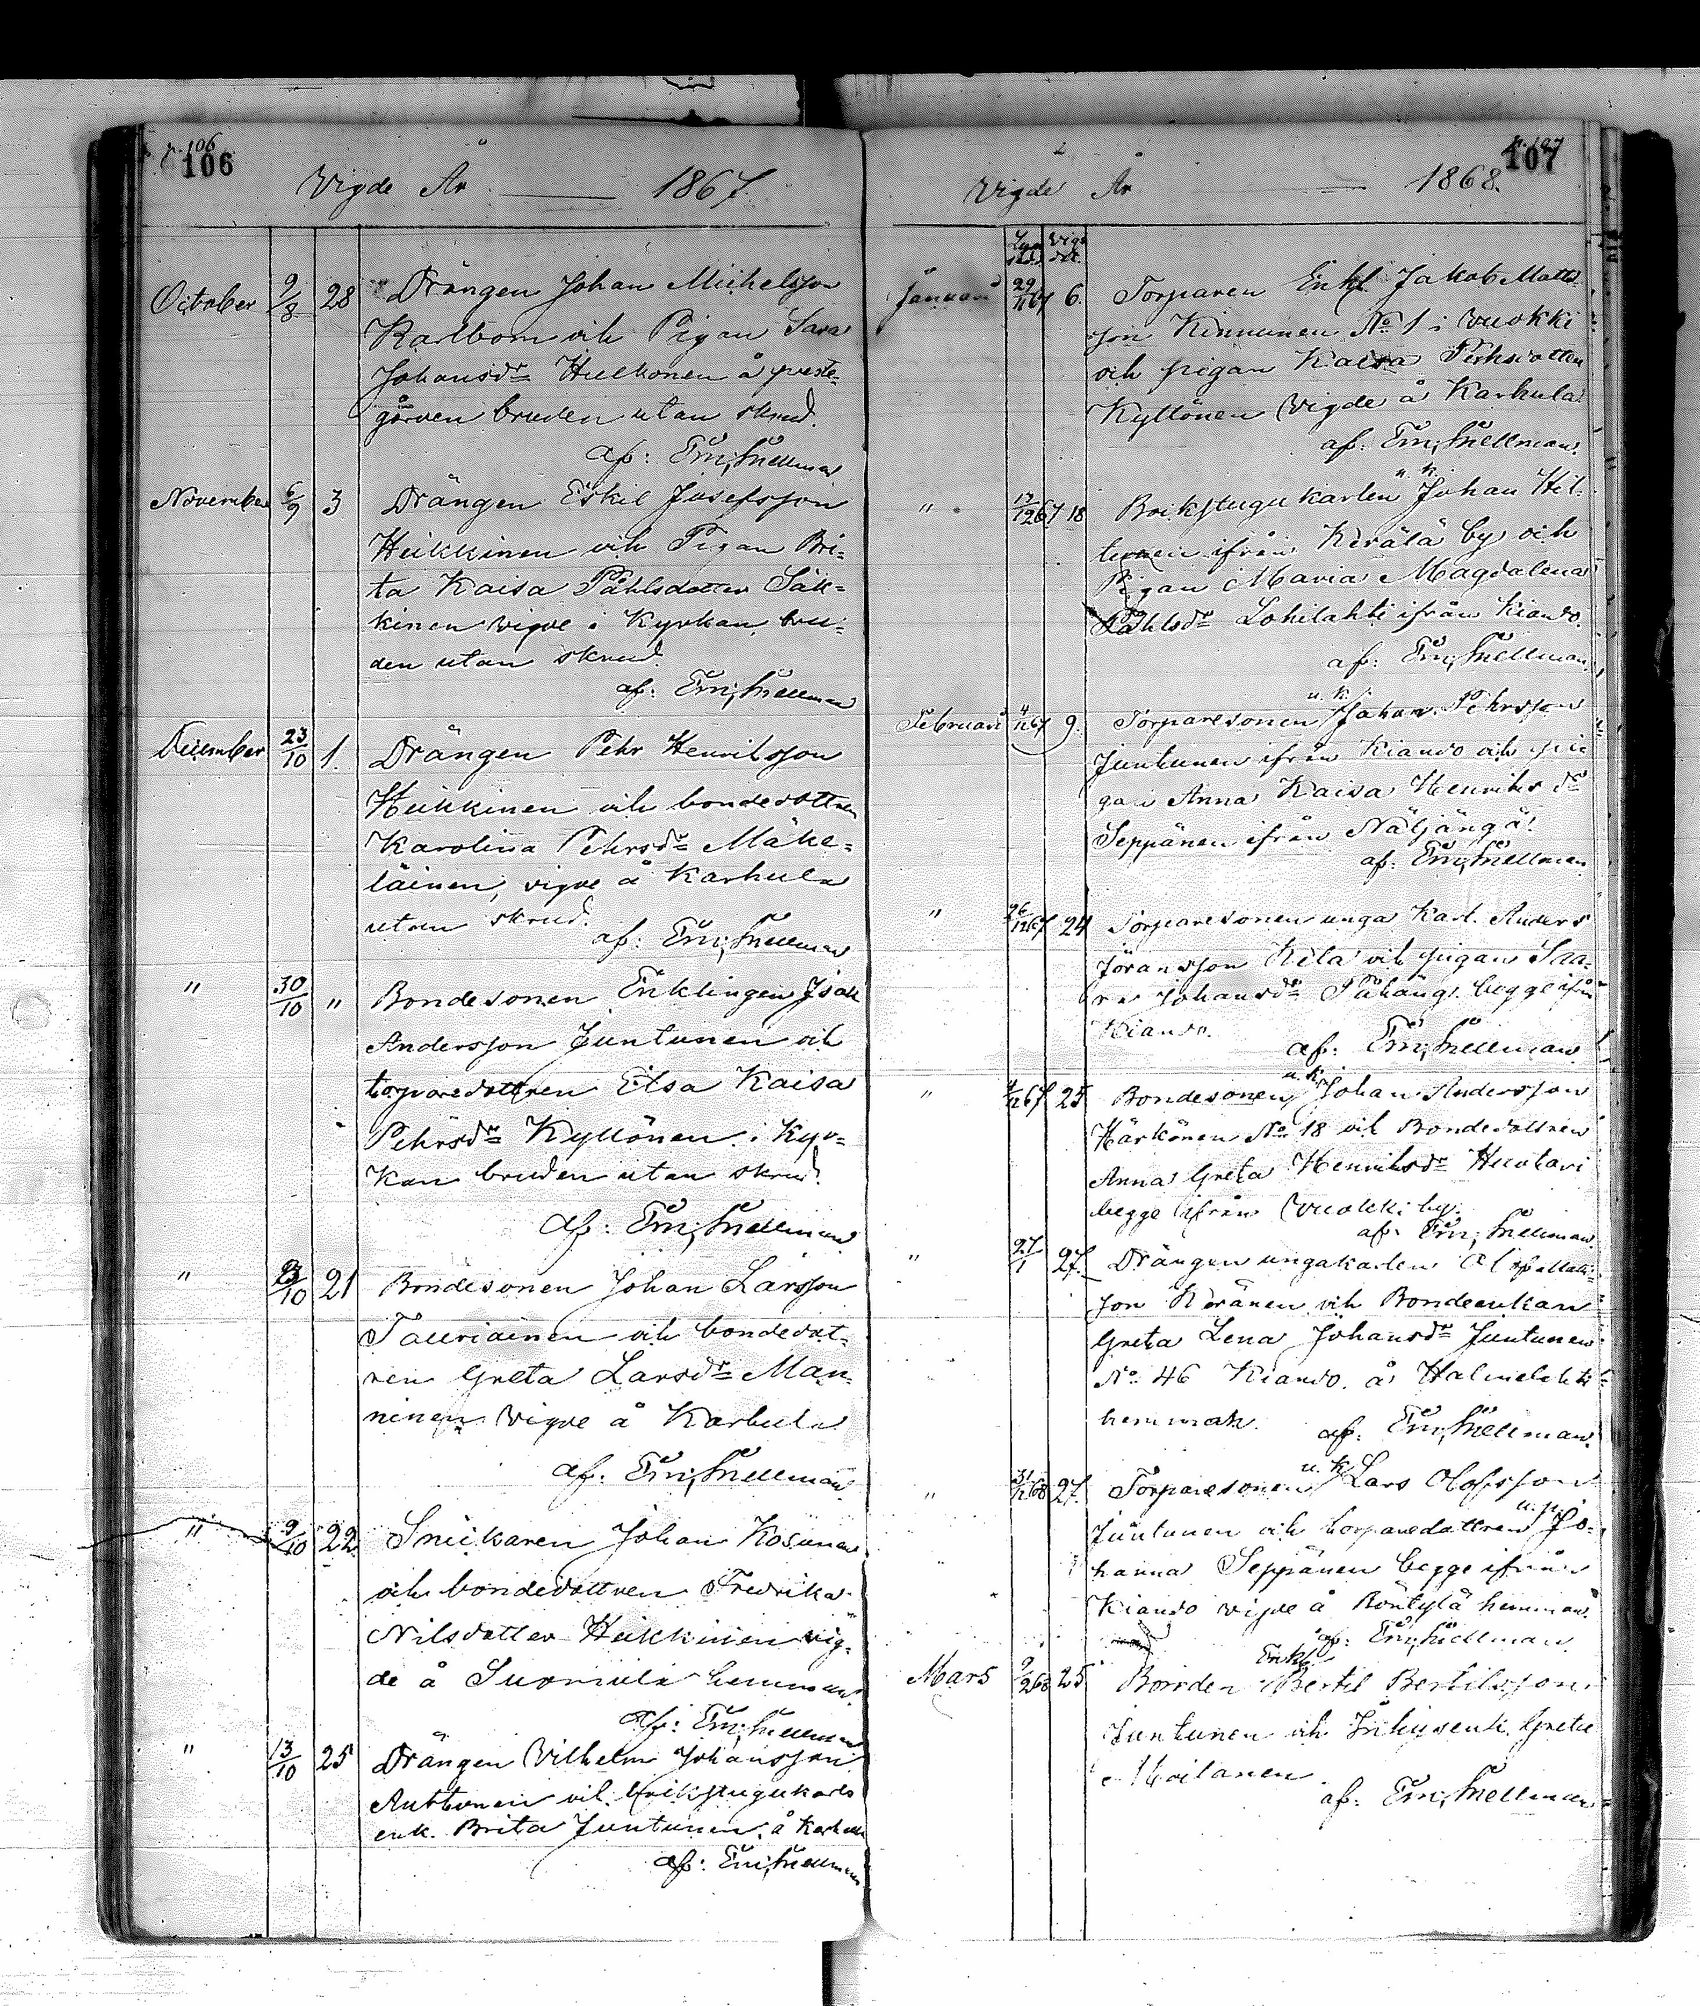 106
Vigde År 1867
October 9/8 28 Drängen Johan Michelsson
Karlbom och Pigan Sara
Johansdr Hulkonen å preste-
gården bruden utan skrud.
af: Em; Snellman
November 6/9 3 Drängen Eskil Josefsson
Heikkinen och Pigan Bri-
ta Kaisa Påhlsdotter Säk-
kinen vigde i Kyrkan, bru-
den utan skrud.
af: Em; Snellman
December 23/10 1. Drängen Pehr Henriksson
Heikkinen och bondedottren
Karolina Pehrsdr Mäke-
läinen, vigde å Karhula
utan skrud.
af: Em; Snellman
" 30/10 " Bondesonen Enklingen Isak
Andersson Juntunen och
torparedottren Elsa Kaisa
Pehrsdr Kyllönen i Kyr-
kan bruden utan skrud.
af: Em; Snellman
" 23/10 21 Bondesonen Johan Larsson
Tauriainen och bondedot-
ren Greta Larsdr Man-
ninen Vigde å Karhula
af: Em; Snellman
" 9/10 22. Snickaren Johan Kosunen
och bondedottren Fredrika
Nilsdotter Heikkinen vig-
de å Suomula hemman
af: Em; Snellman
" 13/10 25 Drängen Vilhelm Johansson
Anttonen och Backstugukarls
enk. Brita Juntunen, å Karhula
af: Em; Snellman
107
Vigde År 1868.
Januari 29/11 67 6. Torparen Enkl Jakob Matts
son Kinnunen No 1 i Vuokki
och pigan Kaisa Pehrsdotter
Kyllönen Vigde å Karhula
af: Em; Snellman.
" 18 Backstugukarlen u. k. Johan Hil-
tunen ifrån Kerälä by och
Pigan Maria Magdalena
Påhlsdr Lohilahti ifrån Kiando.
af: Em; Snellman.
Februari 4/1 67 9. Torparesonen u. k. Johan Pehrsson
Juntunen ifrån Kiando och pi-
gan Anna Kaisa Henriks dr
Seppänen ifrån Näljängä.
af: Em; Snellman.
" 26/12 67 24 Torparesonen unga Karl. Anders
Jöransson Kela och pigan Saa-
ra Johansdr begge ifrån
Kiando.
af: Em; Snellman
" 25 Bondesonen u. k. Johan Andersson
Härkönen No 18 och Bondedottren
Anna Greta Henriksdr Huotari
begge ifrån Vuokki by.
af: Em; Snellman.
" 27/1 27. Drängen ungakarlen
son Keränen och Bondeenkan
Greta Lena Johansdr Juntunen
No 46 Kiando. å Halmelahti
hemman.
af: Em; Snellman.
" 27. Torparesonen u. k. Lars Olofsson
Juntunen och torparedottren u. p. Jo-
hanna Seppänen begge ifrån
Kiando vigde å Böntylä hemman.
af: Em; Snellman
Mars 25 Bonden Enkl. Bertil Bertilsson
Juntunen och Inhysenk. Greta
Moilanen.
af: Em; Snellman